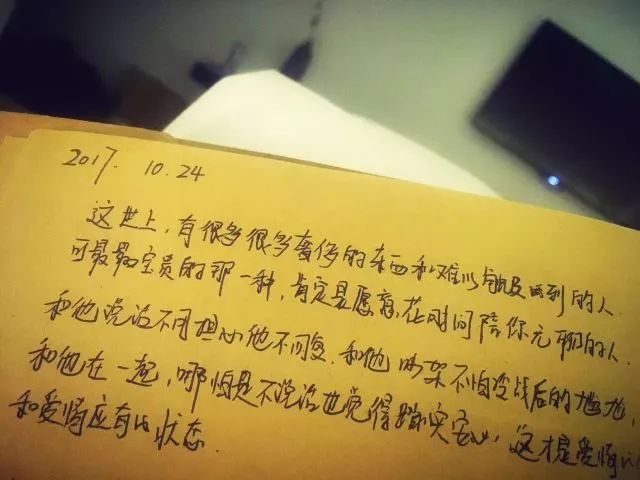 2017. 10.24
这世上,有很多很多奢侈的东西和难以触及到的人.
可最最宝贵的那一种,肯定是愿意花时间陪你无聊的人.
和他说话不用担心他不回复.和他吵架不怕冷战后的尴尬,
和他在一起,哪怕是不说话也觉得踏实安心,这才是爱情
和爱情应有的状态.